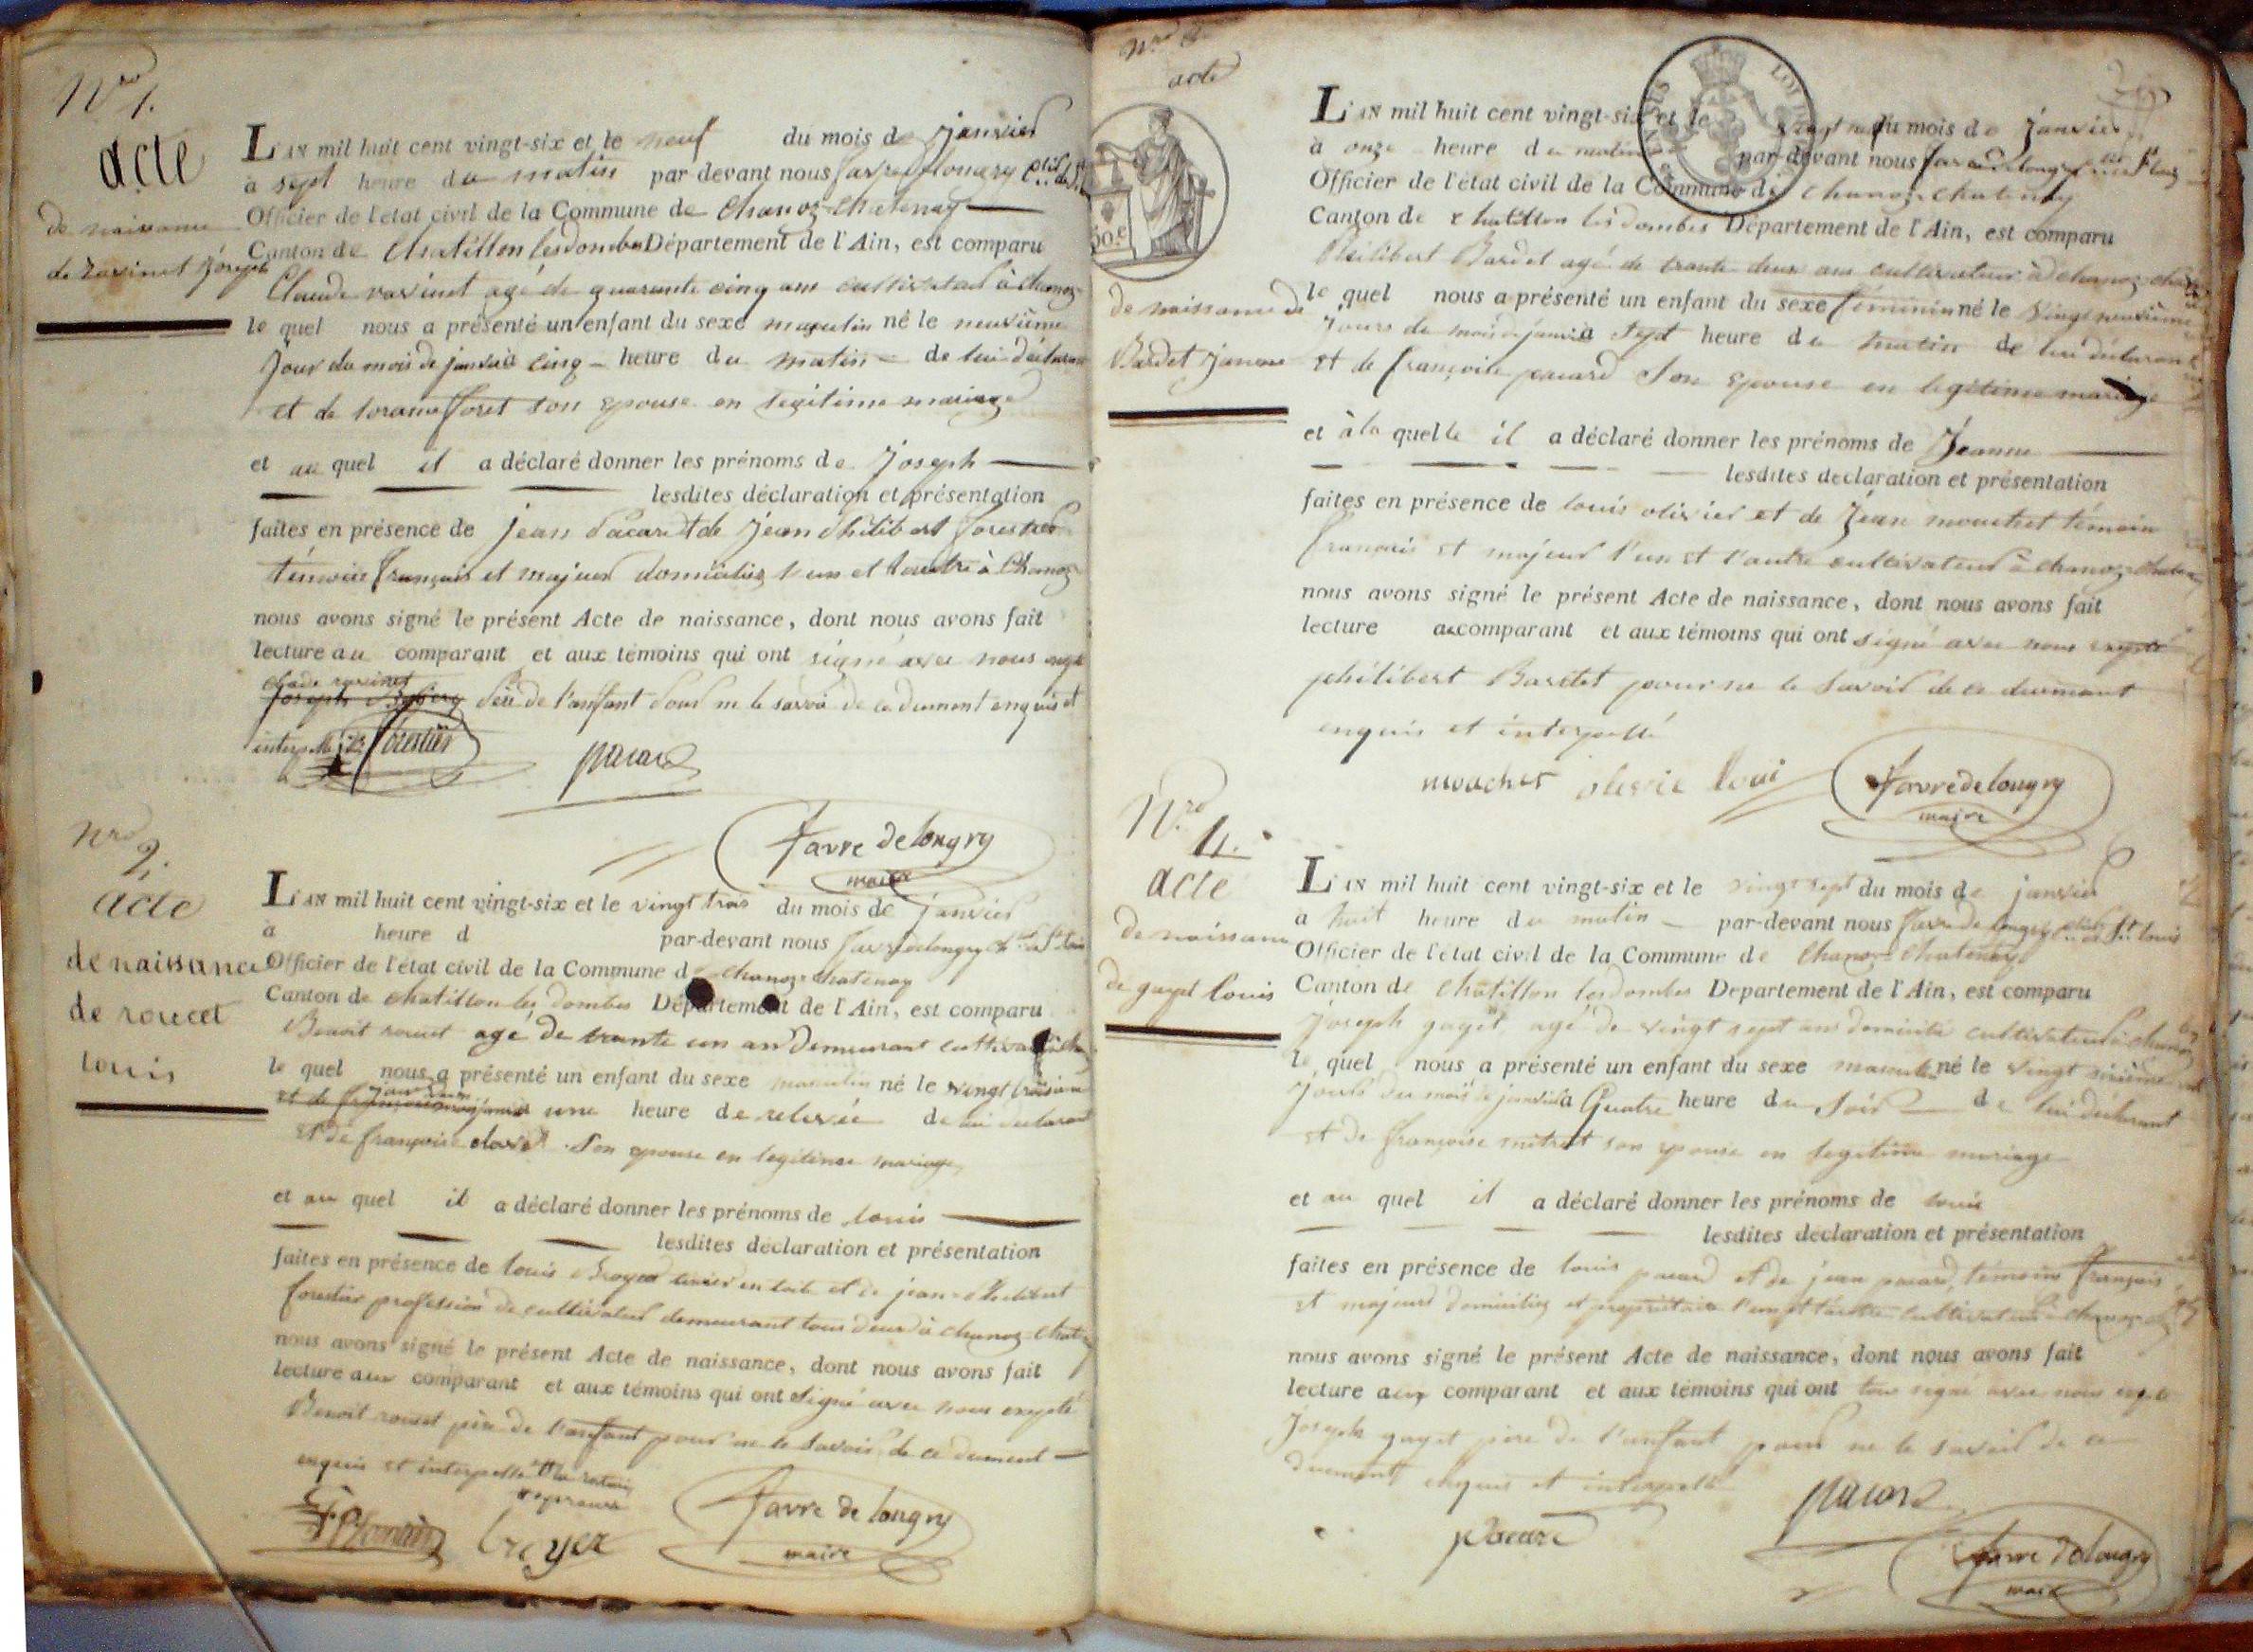 Nro 1.
acte
de naissance
de ravinet Joseph
L'AN mil huit cent vingt-six et le neuf du mois de janvier
à sept heure du matin par-devant nous favre de longry
Officier de l'état civil de la Commune de Chanoz-Chatenay
Canton de Chatillon les dombes Département de l'Ain, est comparu
Claude ravinet agé de quarante cinq ans cultivateur à Chanoz
le quel nous a présenté un enfant du sexe masculin né le neuvième
Jour du mois de janvier à cinq heure du matin de lui déclarant
et de foret son epouse en legitime mariage
et au quel il a déclaré donner les prénoms de Joseph
lesdites déclaration et présentation
faites en présence de jean pacard et de Jean Philibert forestier
témoins français et majeur domiciliés l'un et l'autre à Chanoz
nous avons signé le présent Acte de naissance, dont nous avons fait
lecture au comparant et aux témoins qui ont signé avec nous
claude ravinet
Joseph père de l'enfant pour ne le savoir de ce dument enquis et
forestier pacard
favre de longry
maire
Nro 2.
acte
de naissance
de roucet
louis
L'AN mil huit cent vingt-six et le vingt trois du mois de janvier
à heure d par-devant nous favre de longry
Officier de l'état civil de la Commune de chanoz chatenay
Canton de chatillon les dombes Département de l'Ain, est comparu
Benoit roucet agé de trente un an demeurant
le quel nous a présenté un enfant du sexe masculin né le vingt troisième
une heure de relevée de lui déclarant
et de françoise son epouse en legitime mariage
et au quel il a déclaré donner les prénoms de louis
lesdites déclaration et présentation
faites en présence de louis Broyer et de jean Philibert
forestier profession de cultivateur demeurant tous deux à chanoz chatenay
nous avons signé le présent Acte de naissance, dont nous avons fait
lecture au comparant et aux témoins qui ont signé avec nous excepté
Benoit roucet père de l'enfant pour ne le savoir de ce dument
enquis et interpellé
broyer favre de longry
maire
Nro
acte
50.c
de naissance de
Bardet Janne
L'AN mil huit cent vingt-six et le vingt neuf du mois de janvier
à onze heure du matin par-devant nous favre de longry
Officier de l'état civil de la Commune de Chanoz Chatenay
Canton de chatillon les dombes Département de l'Ain, est comparu
Philibert Bardet agé de trante deux ans cultivateur à chanoz
le quel nous a présenté un enfant du sexe féminin né le vingt neuvième
Jours du mois de janvier à sept heure du matin de lui déclarant
et de françoise pacard son epouse en legitime mariage
et à la quelle il a déclaré donner les prénoms de Jeanne
lesdites déclaration et présentation
faites en présence de louis olivier et de Jean mouchet témoin
français et majeur l'un et l'autre cultivateur à chanoz chatenay
nous avons signé le présent Acte de naissance, dont nous avons fait
lecture au comparant et aux témoins qui ont signé avec nous excepté
philibert Bardet pour ne le savoir de ce dument
enquis et interpellé
mouchet favre de longry
maire
Nro 4.
acte
de naissance
de gayet louis
L'AN mil huit cent vingt-six et le vingt sept du mois de janvier
à huit heure du matin par-devant nous favre de longry
Officier de l'état civil de la Commune de Chanoz Chatenay
Canton de chatillon les dombes Département de l'Ain, est comparu
Joseph gayet agé de vingt sept ans cultivateur à chanoz
le quel nous a présenté un enfant du sexe masculin né le vingt sixième
Jours du mois de janvier à quatre heure du soir de lui déclarant
et de françoise son epouse en legitime mariage
et au quel il a déclaré donner les prénoms de louis
lesdites déclaration et présentation
faites en présence de louis pacard et de jean pacard, témoins français
et majeurs domiciliés et propriétaire l'un et l'autre cultivateur à chanoz
nous avons signé le présent Acte de naissance, dont nous avons fait
lecture aux comparant et aux témoins qui ont tous signé avec nous
Joseph gayet père de l'enfant pour ne le savoir de ce
dument enquis et interpellé
pacard pacard
favre de longry
maire